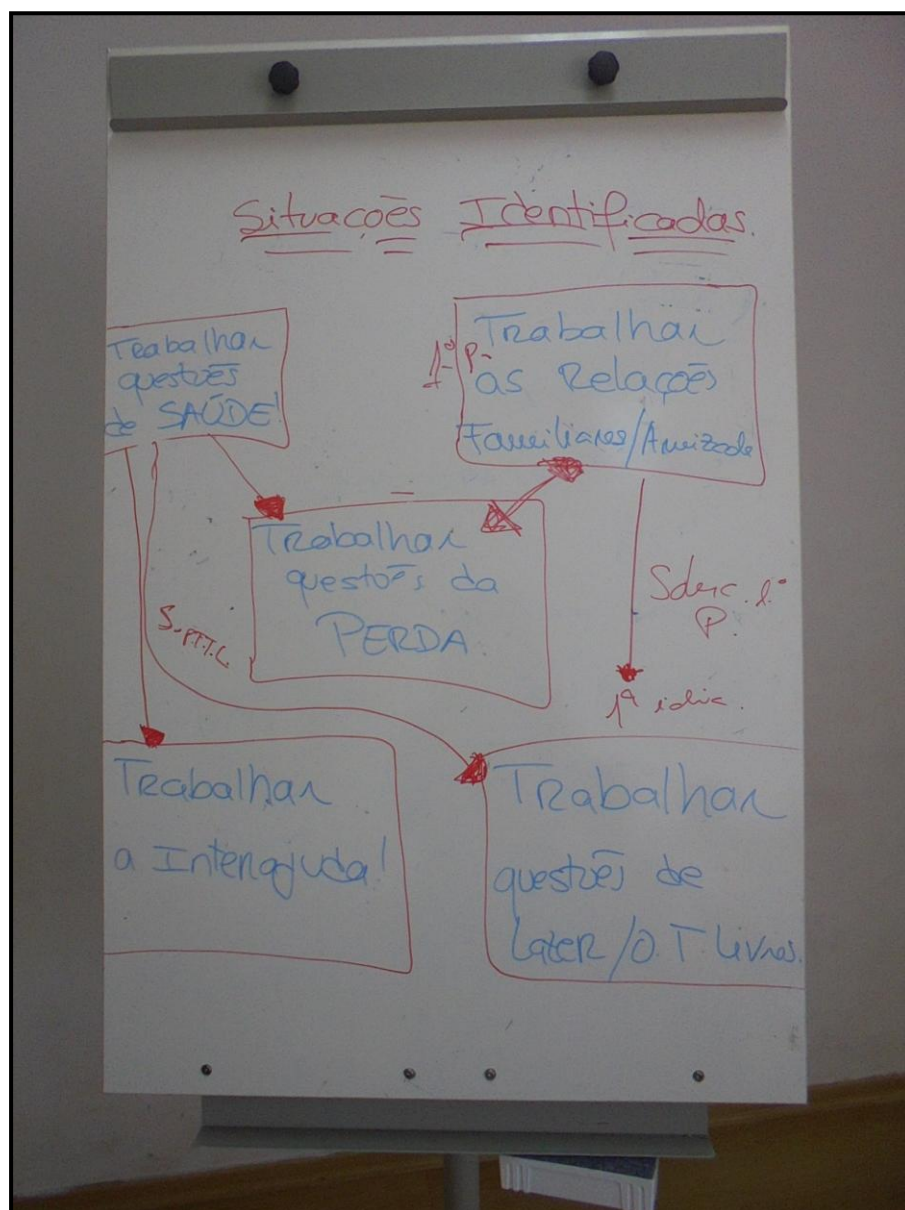 Situações Identificadas.
Trabalhar
questões
de SAÚDE!
1º P-
Trabalhar
as Relações
Familiares/Amizade
Trabalhar
questões da
PERDA
1ª
Trabalhar
a Interajuda!
Trabalhar
questões de
Lazer/O.T. Livres.